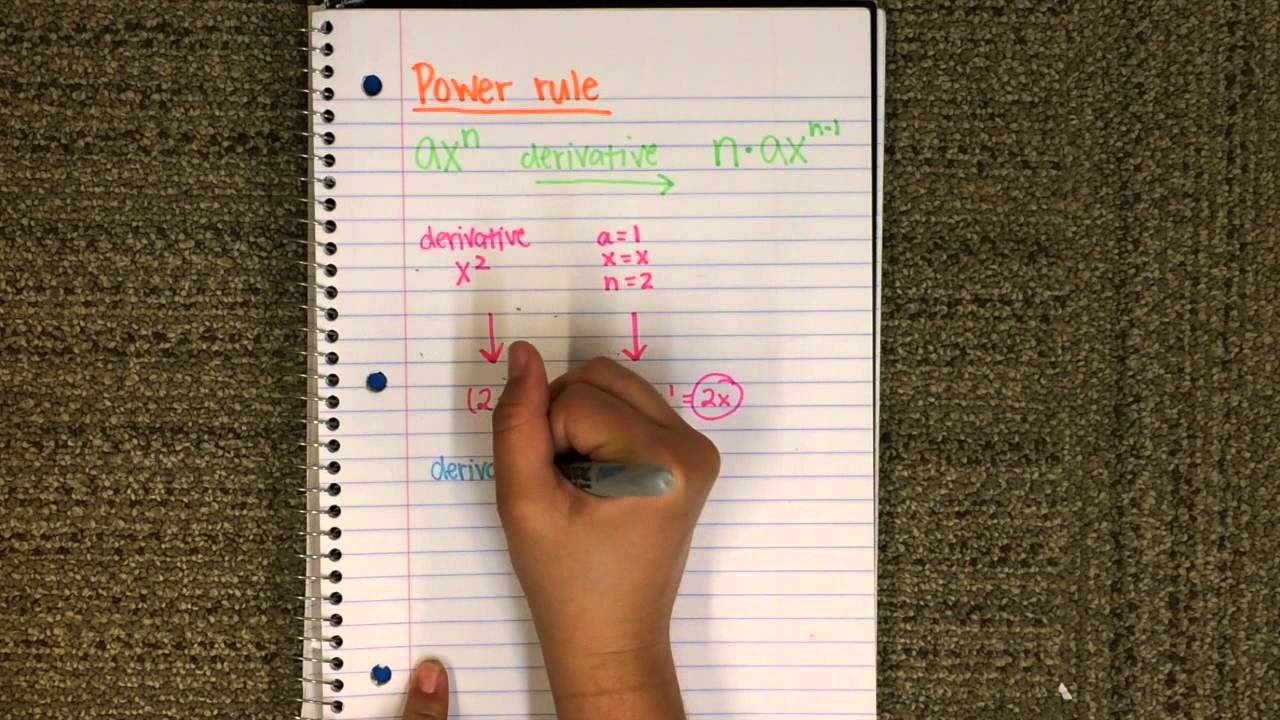 Power rule
ax^n derivative n·ax^n-1
derivative a=1
x² x=x
n=2
(2 ¹ = 2x